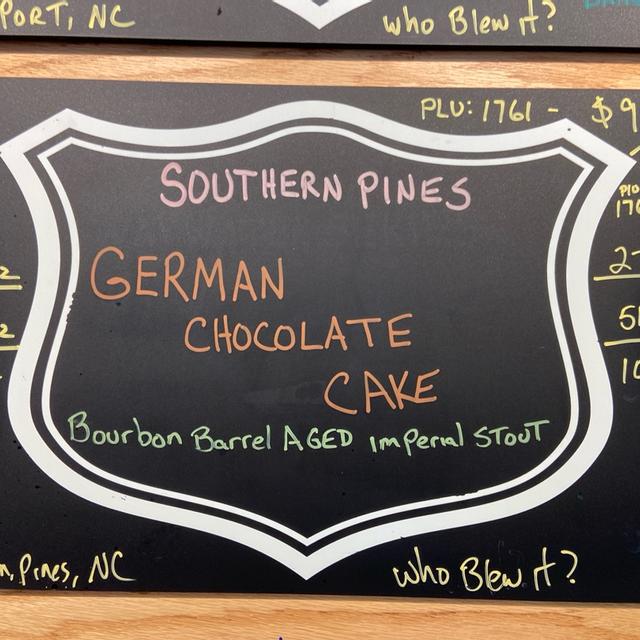 PORT, NC
who Blew it?
PLU: 1761 - $9
SOUTHERN PINES
GERMAN
CHOCOLATE
CAKE
Bourbon Barrel AGED imperial STOUT
Pines, NC
who Blew it?